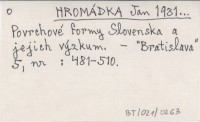 o HROMÁDKA Jan 1931...
Povrchové formy Slovenska a
jejich výzkum. - "Bratislava"
5, nr : 481-510.
BT/021/0263